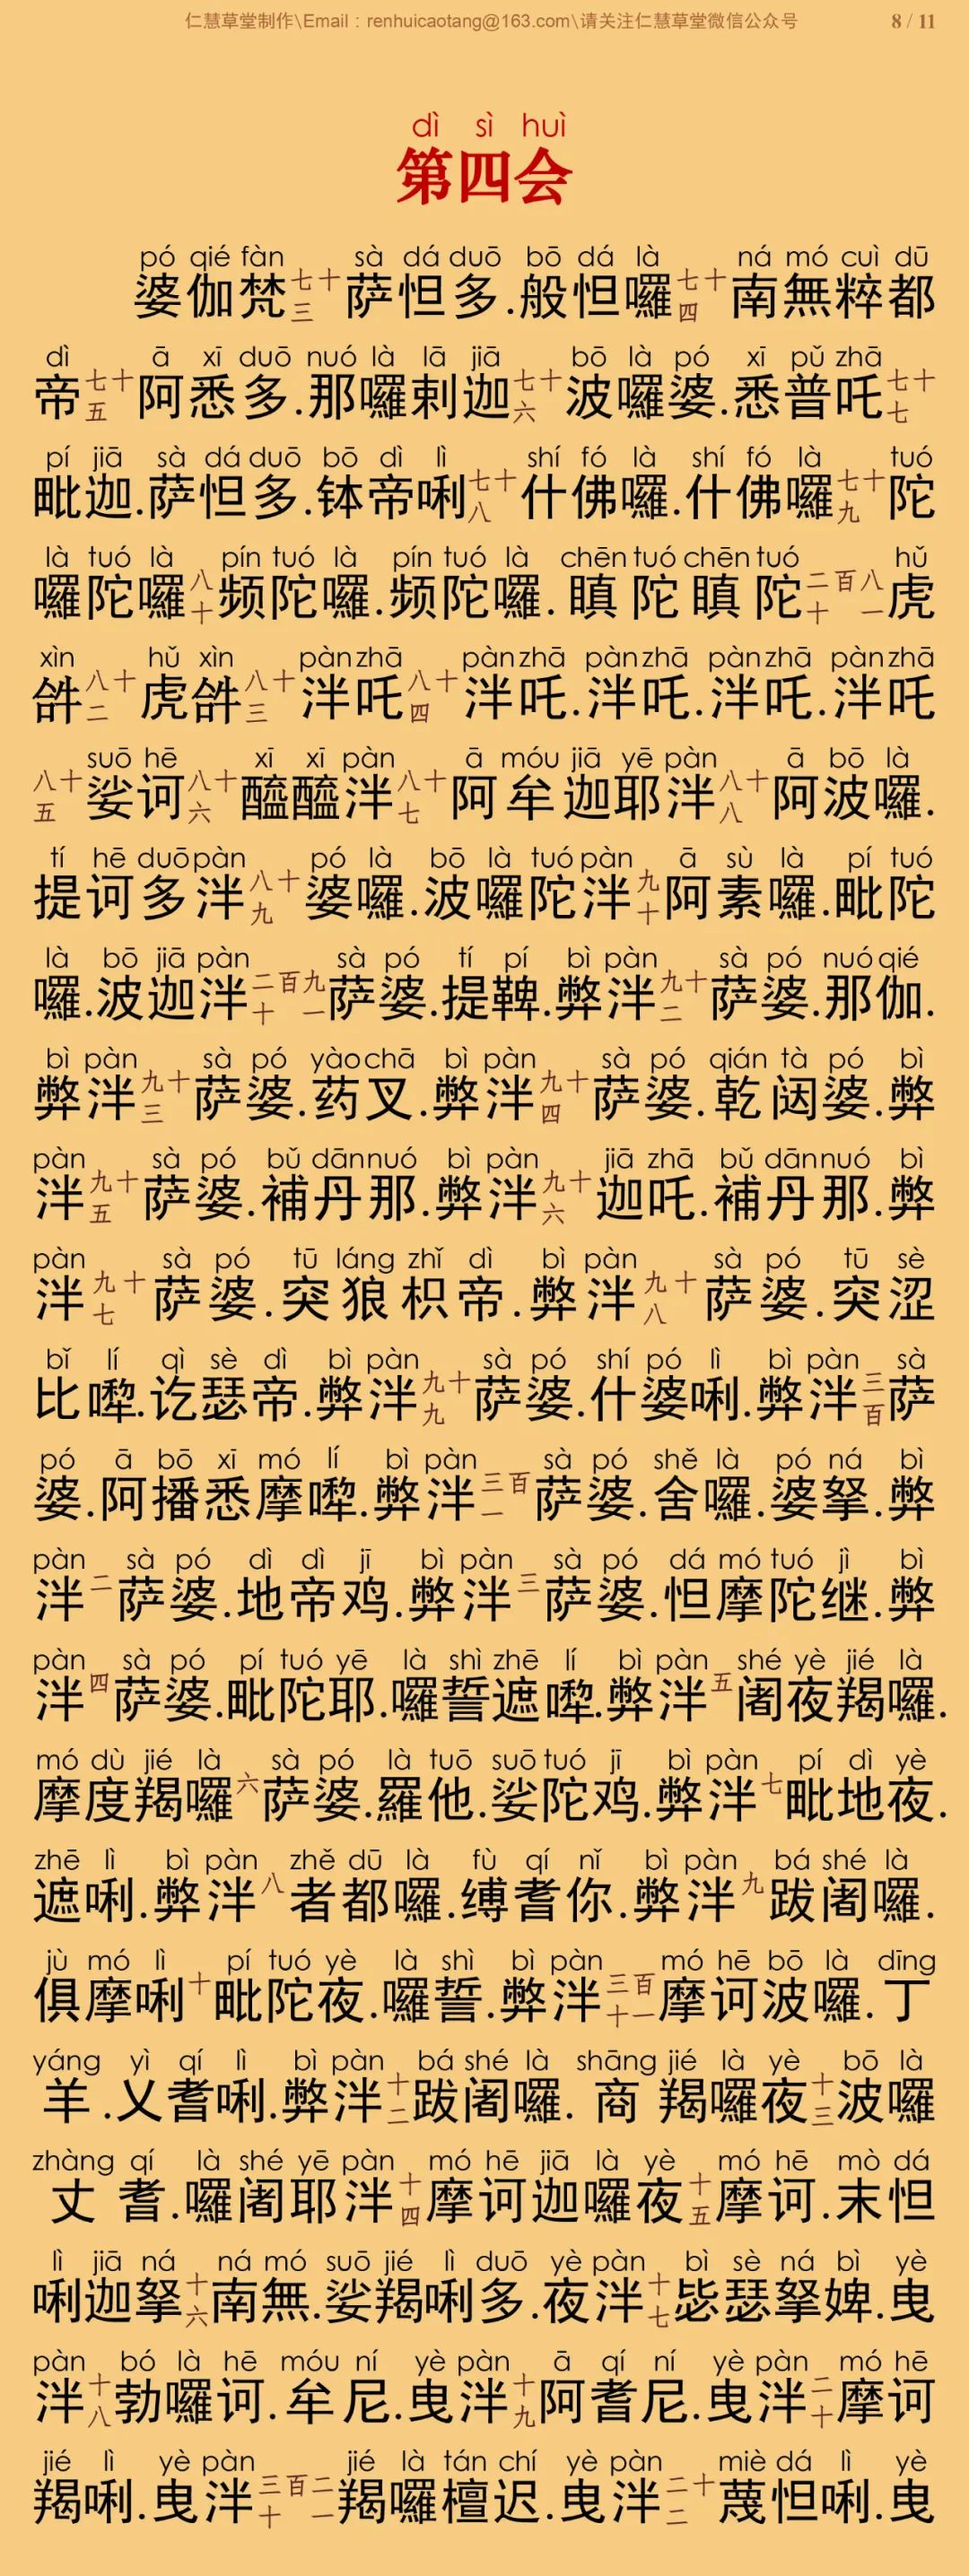 仁慧草堂制作\Email：renhuicaotang@163.com\请关注仁慧草堂微信公众号 8 / 11
dì sì huì
第四会
pó qié fàn sà dá duō bō dá là ná mó cuì dū
婆伽梵七十三萨怛多.般怛囉七十四南無粹都
dì ā xī duō nuó là lā jiā bō là pó xī pǔ zhā
帝七十五阿悉多.那囉剌迦七十六波囉婆.悉普吒七十七
pí jiā sà dá duō bō dì lì shí fó là shí fó là tuó
毗迦.萨怛多.钵帝唎七十八什佛囉.什佛囉七十九陀
là tuó là pín tuó là pín tuó là chēn tuó chēn tuó hǔ
囉陀囉八十频陀囉.频陀囉.瞋陀瞋陀二百八十一虎
xìn hǔ xìn pàn zhā pàn zhā pàn zhā pàn zhā pàn zhā
𤙖八十二虎𤙖八十三泮吒八十四泮吒.泮吒.泮吒.泮吒
suō hē xī xī pàn ā móu jiā yē pàn ā bō là
八十五娑诃八十六醯醯泮八十七阿牟迦耶泮八十八阿波囉.
tí hē duō pàn pó là bō là tuó pàn ā sù là pí tuó
提诃多泮八十九婆囉.波囉陀泮九十阿素囉.毗陀
là bō jiā pàn sà pó tí pí bì pàn sà pó nuó qié
囉.波迦泮二百九十一萨婆.提鞞.弊泮九十二萨婆.那伽.
bì pàn sà pó yào chā bì pàn sà pó qián tà pó bì
弊泮九十三萨婆.药叉.弊泮九十四萨婆.乾闼婆.弊
pàn sà pó bǔ dān nuó bì pàn jiā zhā bǔ dān nuó bì
泮九十五萨婆.補丹那.弊泮九十六迦吒.補丹那.弊
pàn sà pó tū láng zhǐ dì bì pàn sà pó tū sè
泮九十七萨婆.突狼枳帝.弊泮九十八萨婆.突涩
bǐ lí qì sè dì bì pàn sà pó shí pó lì bì pàn sà
比㗚.讫瑟帝.弊泮九十九萨婆.什婆唎.弊泮三百萨
pó ā bō xī mó lí bì pàn sà pó shě là pó ná bì
婆.阿播悉摩㗚.弊泮三百一萨婆.舍囉.婆拏.弊
pàn sà pó dì dì jī bì pàn sà pó dá mó tuó jì bì
泮二萨婆.地帝鸡.弊泮三萨婆.怛摩陀继.弊
pàn sà pó pí tuó yē là shì zhē lí bì pàn shé yè jié là
泮四萨婆.毗陀耶.囉誓遮㗚.弊泮五阇夜羯囉.
mó dù jié là sà pó là tuō suō tuó jī bì pàn pí dì yè
摩度羯囉六萨婆.羅他.娑陀鸡.弊泮七毗地夜.
zhē lì bì pàn zhě dū là fù qí nǐ bì pàn bá shé là
遮唎.弊泮八者都囉.缚耆你.弊泮九跋阇囉.
jù mó lì pí tuó yè là shì bì pàn mó hē bō là dīng
俱摩唎十毗陀夜.囉誓.弊泮三百十一摩诃波囉.丁
yáng yì qí lì bì pàn bá shé là shāng jié là yè bō là
羊.乂耆唎.弊泮十二跋阇囉.商羯囉夜十三波囉
zhàng qí là shé yē pàn mó hē jiā là yè mó hē mò dá
丈耆.囉阇耶泮十四摩诃迦囉夜十五摩诃.末怛
lì jiā ná ná mó suō jié lì duō yè pàn bì sè ná bì yè
唎迦拏十六南無.娑羯唎多.夜泮十七毖瑟拏婢.曳
pàn bó là hē móu ní yè pàn ā qí ní yè pàn mó hē
泮十八勃囉诃.牟尼.曳泮十九阿耆尼.曳泮二十摩诃
jié lì yè pàn jié là tán chí yè pàn miè dá lì yè
羯唎.曳泮三百二十一羯囉檀迟.曳泮二十二蔑怛唎.曳